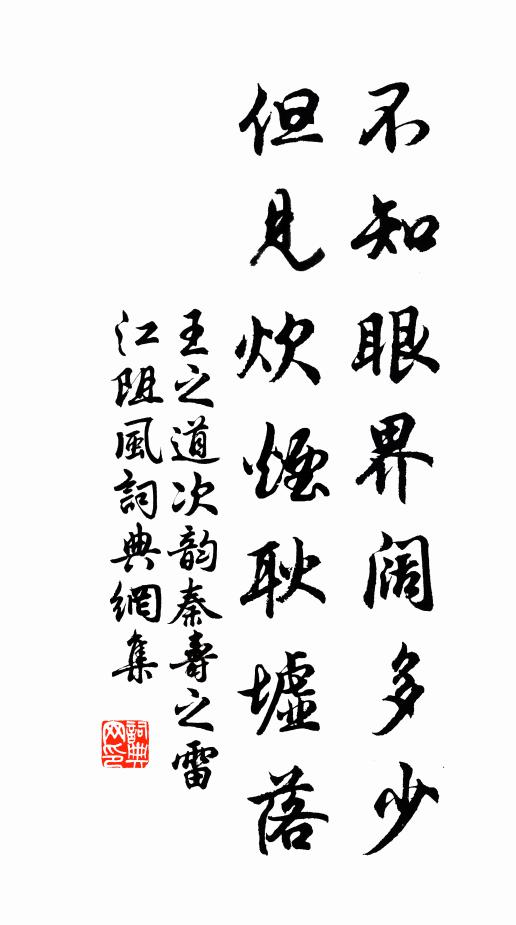 不知眼界阔多少
但見炊煙耿墟落
王之道次韵秦壽之雷
江阻風詞典網集
詞典